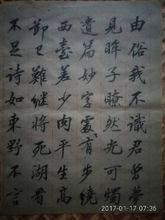 由俗我不識君曾夢
見眸子瞭然光可燭
遺篇妙字處有步繞
西臺差少肉平生高
節已難繼將死湖看
不足詩如東野不言
2017-01-17 07:35